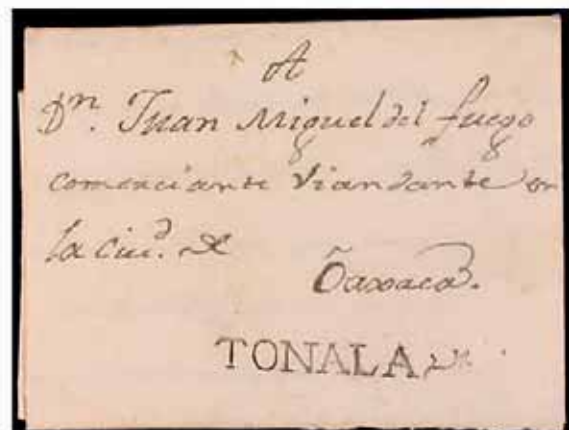 A
Dn. Juan Miguel del fuego
comerciante viandante en
la ciud. de
Oaxaca.
TONALA